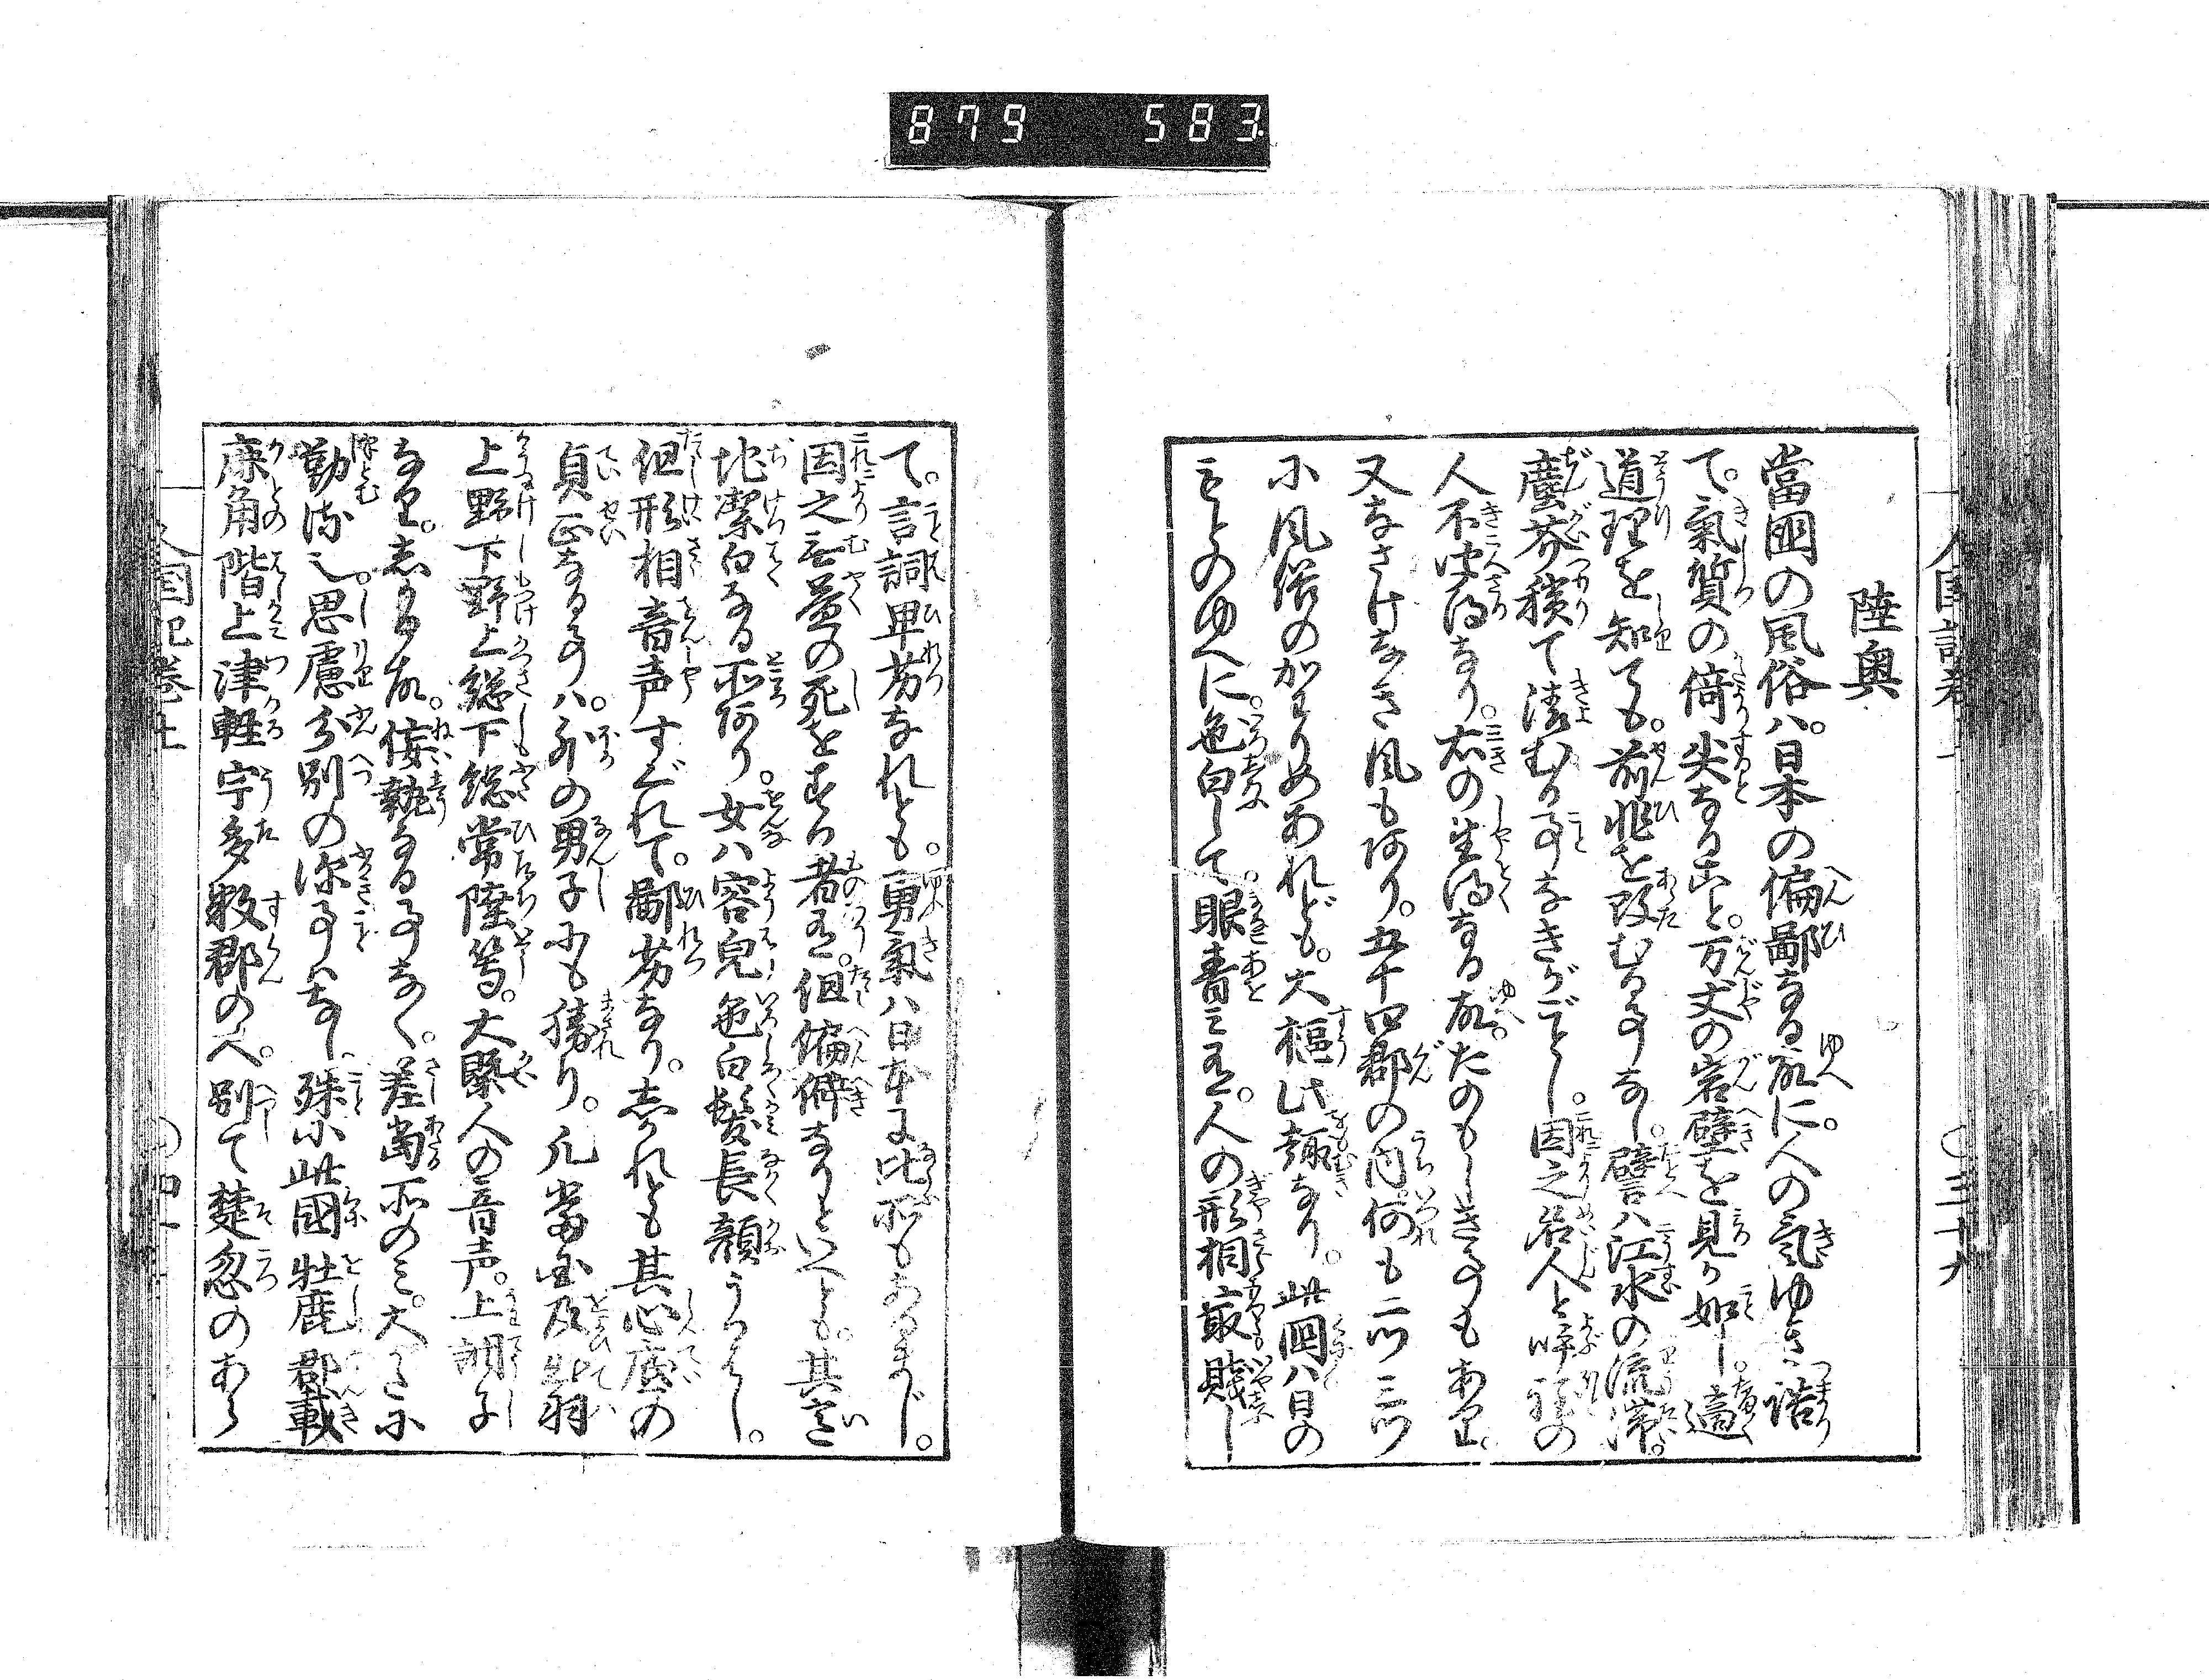 879 583
陸奥
當國の風俗ハ。日本の偏鄙なる故に。人の氣ゆき詰
て。氣質の倚尖なること。万丈の岩壁を見るが如し。適
道理を知ても。前非を改むる事なし。譬ハ江水の流滞。
塵芥積て清むる事なきがごとし。因之名人と呼程の
人不聞得なり。右の生得なる故。たのもしき事もあり。
又なさけなき風も有り。五十四郡の内。何も二ツ三ツ
小風俗のかわりめあれども。大樞此趣なり。此國ハ日の
もとのゆへに。色白して。眼青ミ有。人の形相最賤し
て。言詞卑劣なれとも。勇氣ハ日本に此所もあるまじ。
因之無益の死をする者有。但偏僻なりといへども。其意
地潔白なる所有り。女ハ容皃色白髪長顔うつくし。
但形相音声すぐれて。鄙劣なり。志かれとも其心底の
貞正なる事ハ。外の男子にも勝れり。凡當国及出羽
上野下野上総下総常陸等。大槩人の音声。上調子
なり。志かる故。侫執なる事なく。差當所のミ。大かた小
勤勝也。思慮分別の深事なし。殊小此國牡鹿郡載
鹿角階上津軽宇多数郡のへ。別て楚忽のあら
人国記巻上